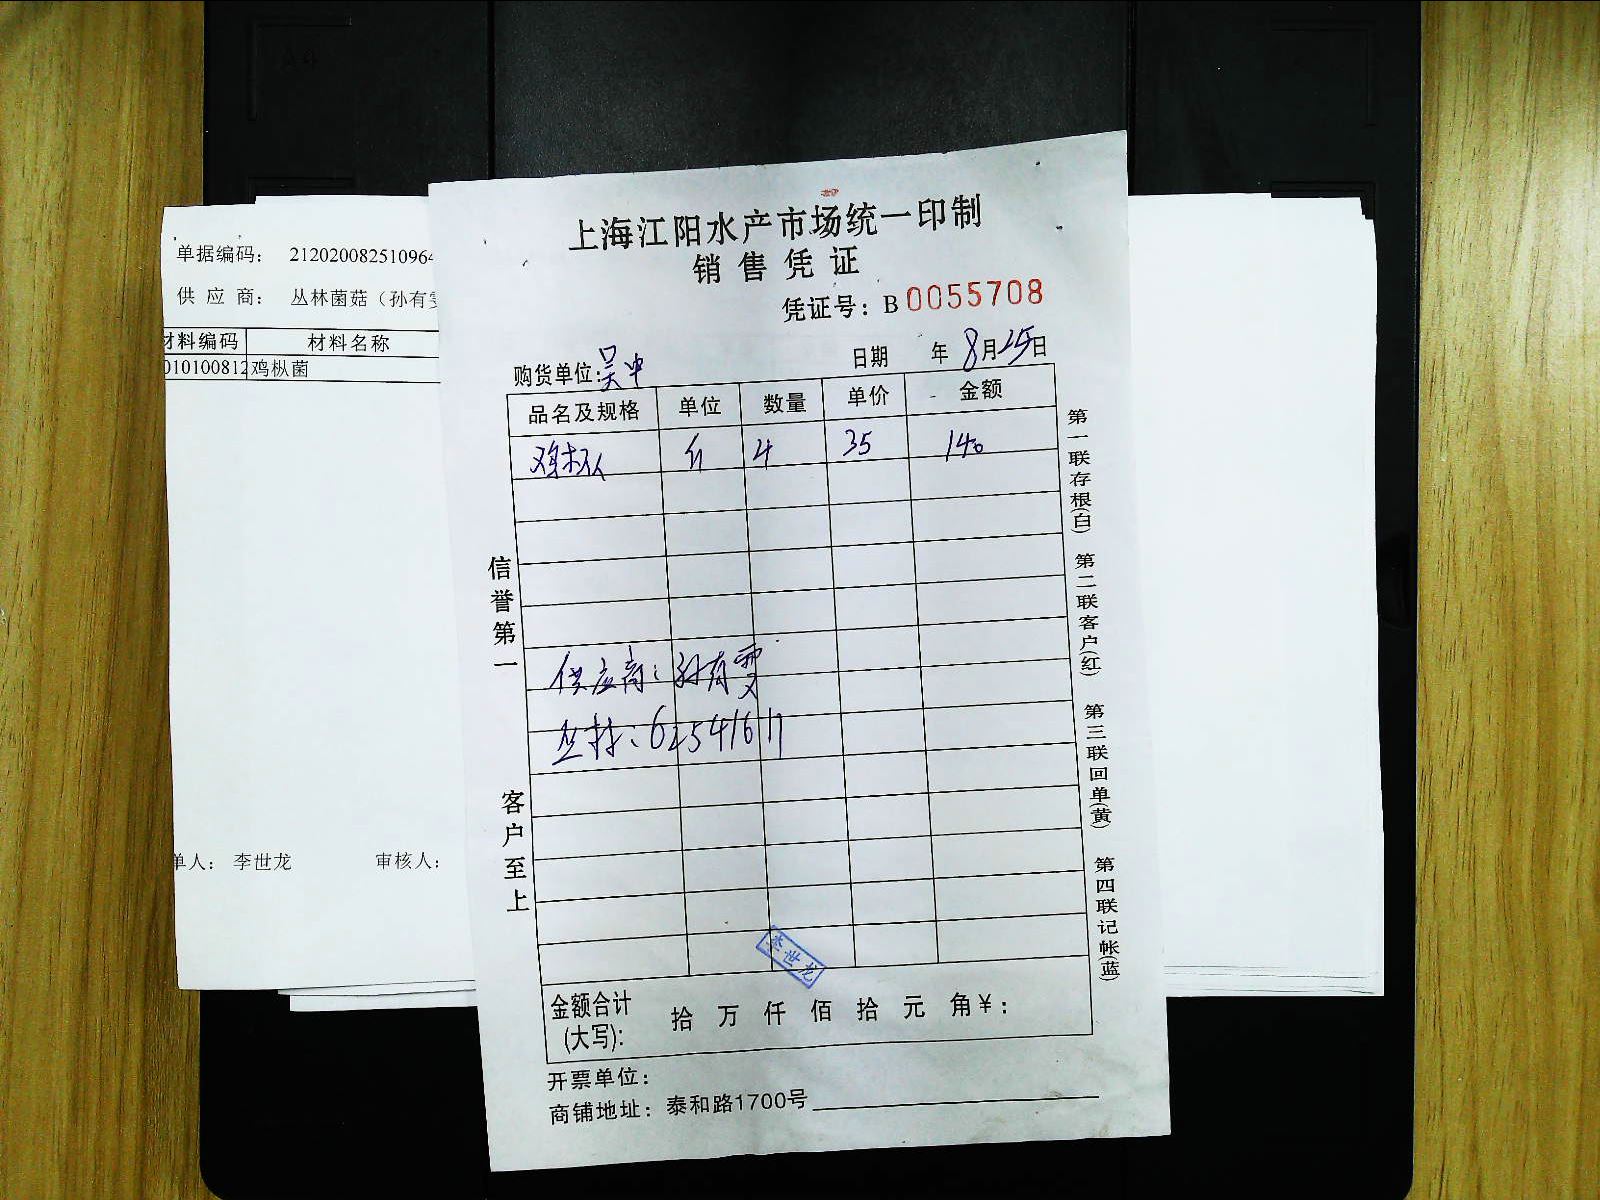 单据编码： 212020082510964
供 应 商： 丛林菌菇（孙有雯
材料编码 材料名称
010100812 鸡枞菌
单人： 李世龙 审核人：
上海江阳水产市场统一印制
销 售 凭 证
凭证号：B 0055708
购货单位：吴中 日期 年 8月25日
品名及规格 单位 数量 单价 金额
鸡枞 斤 4 35 140
供应商：孙有雯
丛林：62541617
信誉第一
客户至上
第一联存根(白) 第二联客户(红) 第三联回单(黄) 第四联记帐(蓝)
李世龙
金额合计 (大写): 拾 万 仟 佰 拾 元 角 ¥：
开票单位：
商铺地址：泰和路1700号